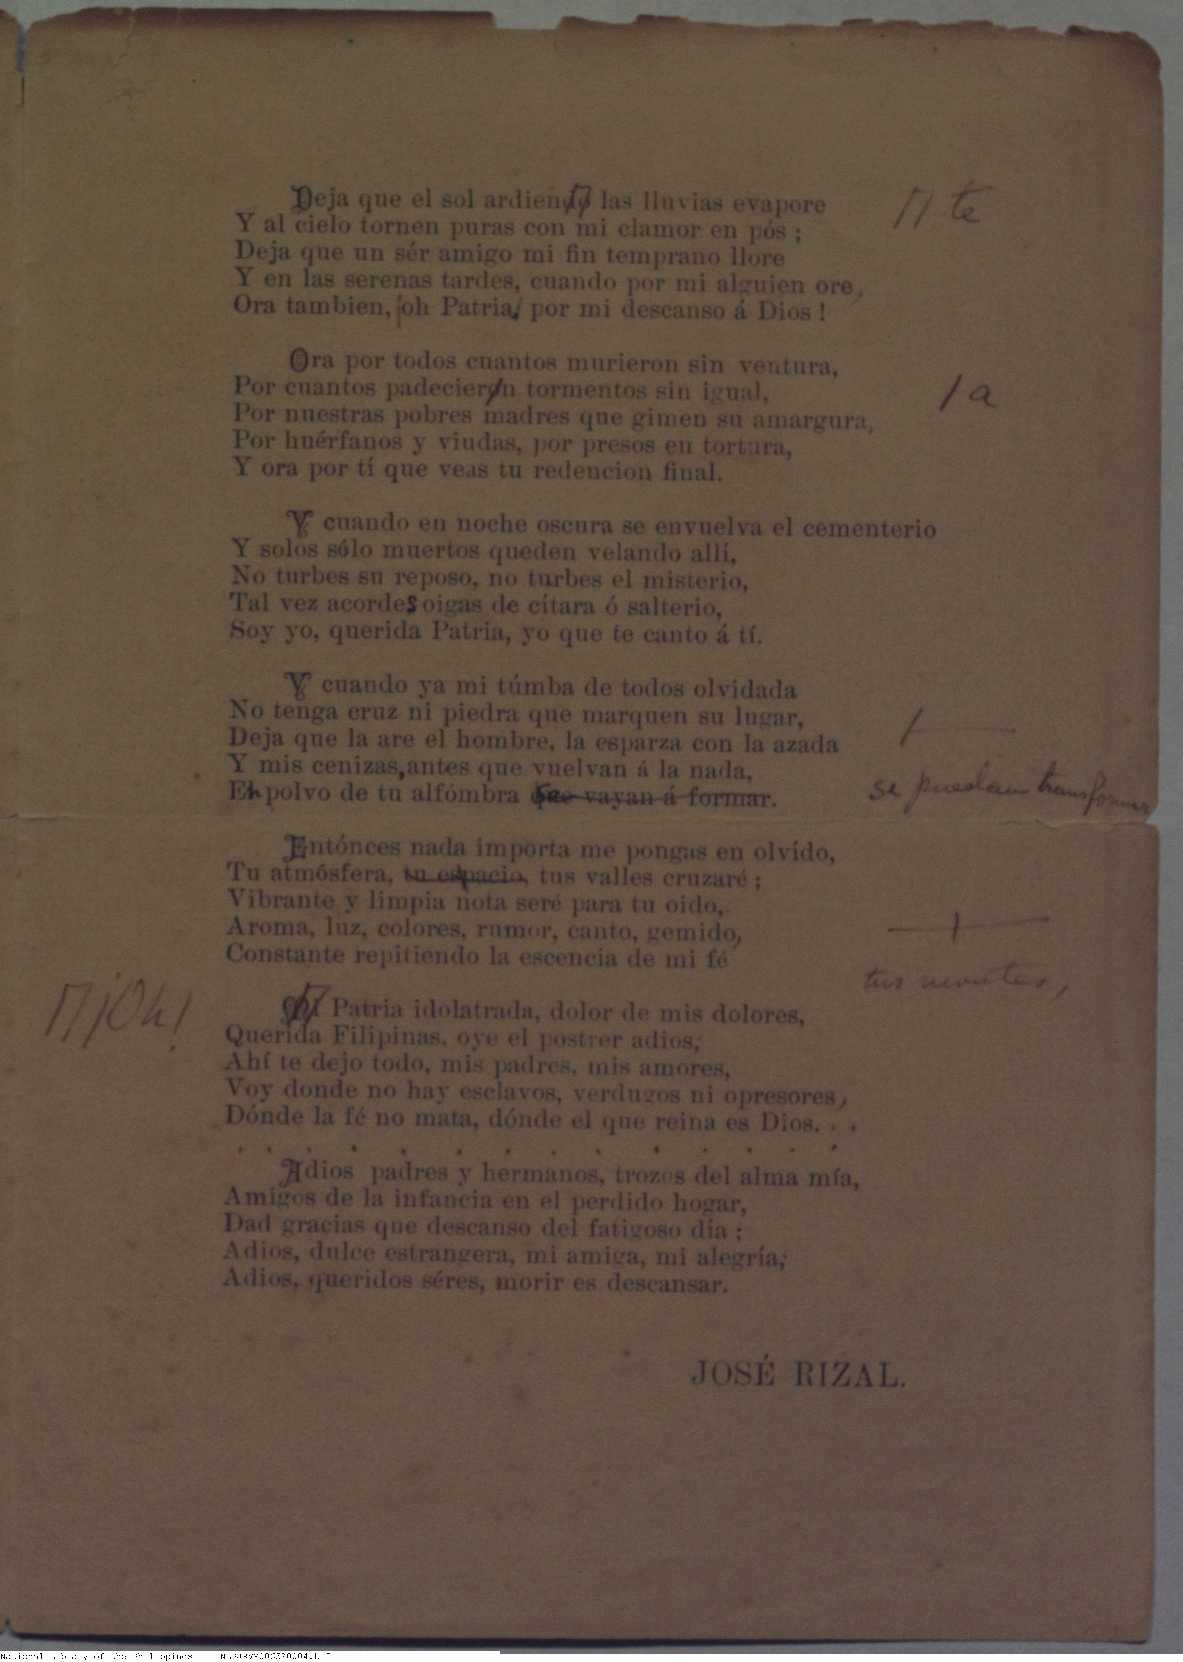 Deja que el sol ardiendo las lluvias evapore
te
Y al cielo tornen puras con mi clamor en pós ;
Deja que un sér amigo mi fin temprano llore
Y en las serenas tardes, cuando por mi alguien ore,
Ora tambien, ¡oh Patria, por mi descanso á Dios !
Ora por todos cuantos murieron sin ventura,
Por cuantos padecieron tormentos sin igual,
a
Por nuestras pobres madres que gimen su amargura,
Por huérfanos y viudas, por presos en tortura,
Y ora por tí que veas tu redencion final.
Y cuando en noche oscura se envuelva el cementerio
Y solos sólo muertos queden velando allí,
No turbes su reposo, no turbes el misterio,
Tal vez acordes oigas de cítara ó salterio,
Soy yo, querida Patria, yo que te canto á tí.
Y cuando ya mi túmba de todos olvidada
No tenga cruz ni piedra que marquen su lugar,
Deja que la are el hombre, la esparza con la azada
Y mis cenizas, antes que vuelvan á la nada,
En polvo de tu alfómbra que vayan á formar.
se puedan transformar
Entónces nada importa me pongas en olvído,
Tu atmósfera, tu espacio, tus valles cruzaré ;
Vibrante y limpia nota seré para tu oido,
Aroma, luz, colores, rumor, canto, gemido,
Constante repitiendo la escencia de mi fé
tus montes,
¡Oh!
Patria idolatrada, dolor de mis dolores,
Querida Filipinas, oye el postrer adios,
Ahí te dejo todo, mis padres, mis amores,
Voy donde no hay esclavos, verdugos ni opresores,
Dónde la fé no mata, dónde el que reina es Dios. . .
. . . . . . . . . . . . . .
Adios padres y hermanos, trozos del alma mía,
Amigos de la infancia en el perdido hogar,
Dad gracias que descanso del fatigoso día ;
Adios, dulce estrangera, mi amiga, mi alegría;
Adios, queridos séres, morir es descansar.
JOSÉ RIZAL.
National Library of the Philippines